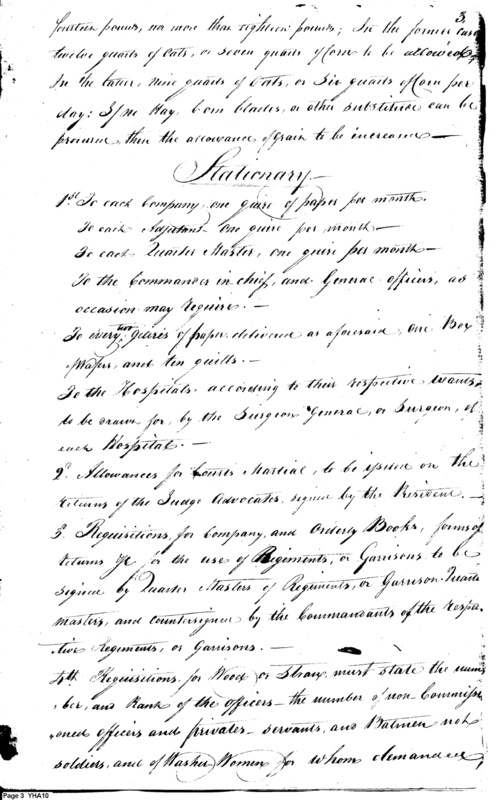 3.
fourteen pounds, no more than eighteen pounds; In the former case
twelve quarts of Oats, or seven quarts of Corn to be allowed
In the latter, nine quarts of Oats, or Six quarts of Corn per
day: If no Hay, Corn blades, or other substitute can be
procured, then the allowance of grain to be increased —
Stationary —
1st To each Company one quire of paper per month.
To each Adjutant one quire per month —
To each Quarter Master, one quire per month —
To the Commander in chief, and General officers, as
occasion may require. —
To every two quires of paper delivered as aforesaid, one Box
Wafers, and ten quills. —
To the Hospitals according to their respective wants,
to be drawn for, by the Surgeon General, or Surgeon, of
each Hospital. —
2d Allowances for Courts Martial, to be issued on the
returns of the Judge Advocates, signed by the President. —
3. Requisitions, for Company, and Orderly Books, forms of
returns &c for the use of Regiments, or Garrisons to be
signed by Quarter Masters of Regiments, or Garrison Quarter
masters, and countersigned by the Commandants of the respec
-tive Regiments, or Garrisons. —
4th Requisitions, for Wood or Straw must state the num
-ber, and Rank of the officers — the number of non Commissi
-oned officers and privates — servants, and Batmen not
soldiers, and of Washer Women for whom demanded,
Page 3 YHA10